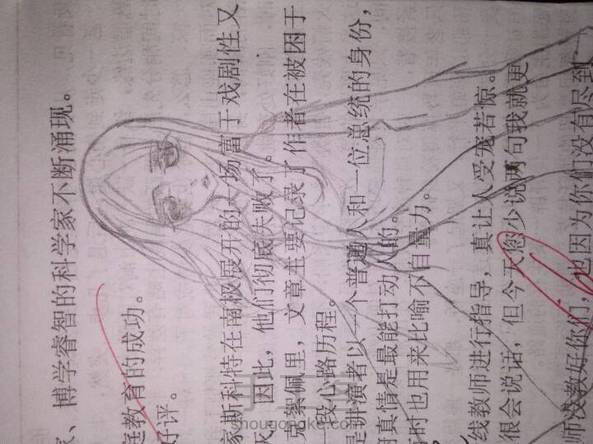 、博学睿智的科学家不断涌现。
庭教育的成功。
好评。
家斯科特在南极展开的一场富于戏剧性又
灭。因此，他们彻底失败了。
克絮佩里，文章主要记录了作者在被困于
一段心路历程。
是讲演者以一个普通人和一位总统的身份，
真情是最能打动人的。
时也用来比喻不自量力。
线教师进行指导，真让人受宠若惊。
很会说话，但今天您少说两句我就更
师没教好你们，也因为你们没有尽到
shougongke.com